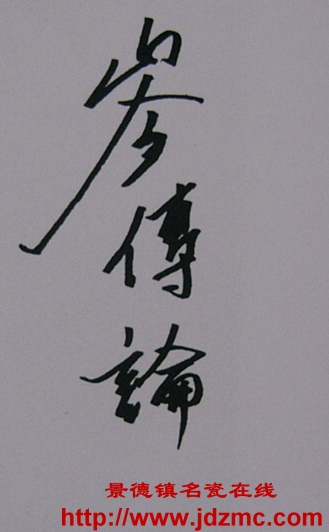 岑傳論
景德镇名瓷在线
http://www.jdzmc.com